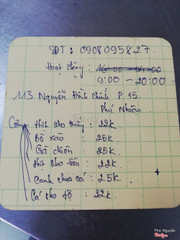 SĐT: 0908095827
Hoạt động:
9:00 - 20:00
113 Nguyễn Đình Chính P.15
Phú Nhuận
Cơm thịt kho trứng: 22k
Bò xào : 25k
Gà chiên : 25k
thịt kho tiêu : 22k
Canh chua cá : 25k
Cá kho tộ : 22k